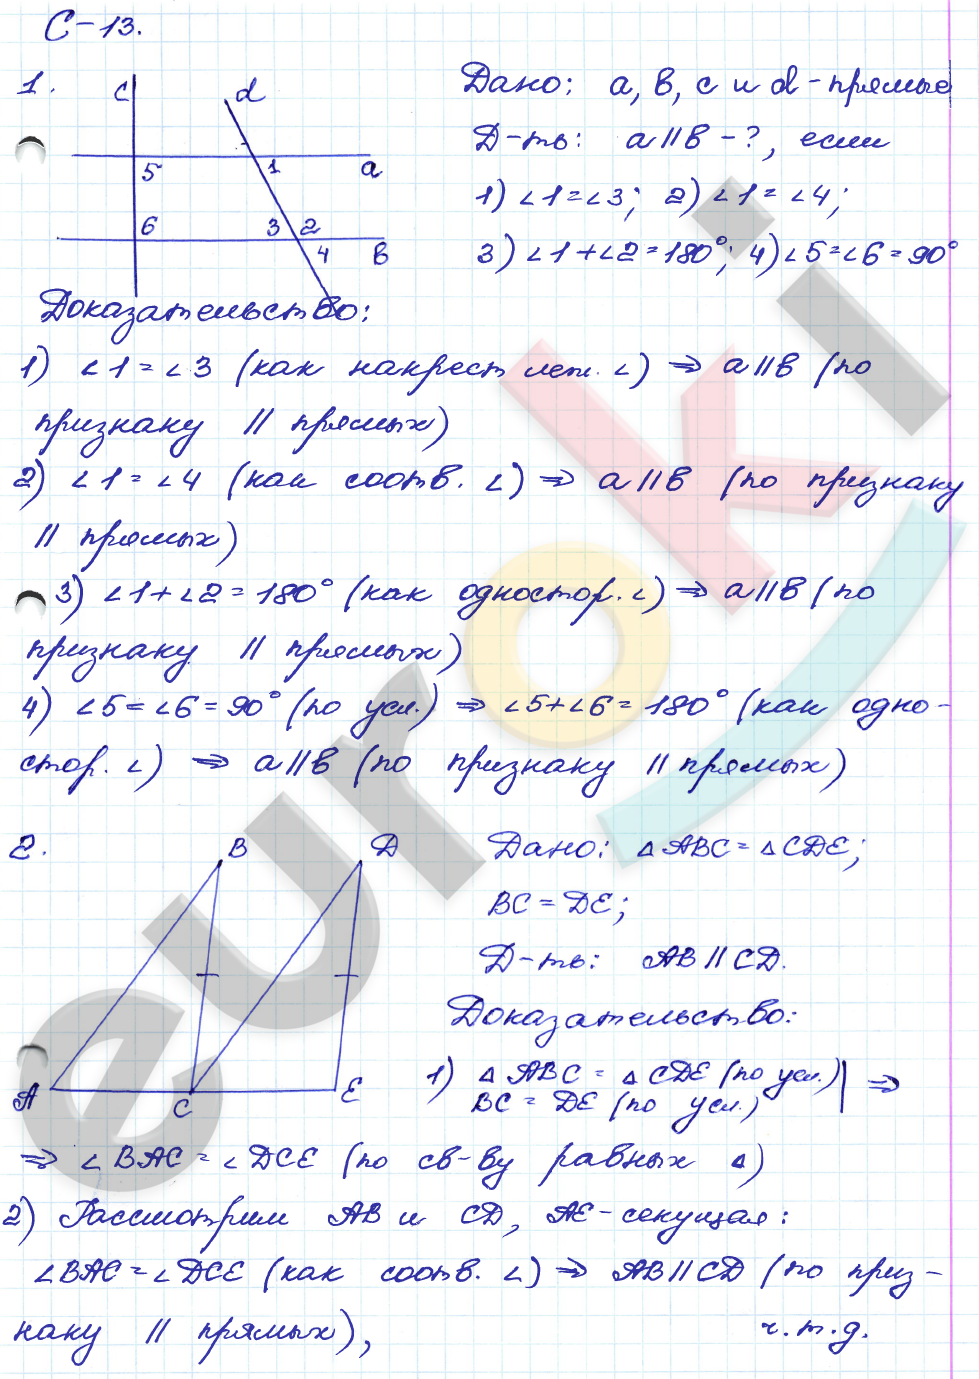 С-13.
1.
c d
5 1 a
6 3 2
4 в
Дано: a, в, c и d - прямые
Д-ть: a || в - ?, если
1) ∠1=∠3; 2) ∠1=∠4;
3) ∠1+∠2=180°; 4) ∠5=∠6=90°
Доказательство:
1) ∠1=∠3 (как накрест леж. ∠) ⇒ a || в (по
признаку || прямых)
2) ∠1=∠4 (как соотв. ∠) ⇒ a || в (по признаку
|| прямых)
3) ∠1+∠2=180° (как одностор. ∠) ⇒ a || в (по
признаку || прямых)
4) ∠5=∠6=90° (по усл.) ⇒ ∠5+∠6=180° (как одно-
стор. ∠) ⇒ a || в (по признаку || прямых)
2.
B D
A C E
Дано: △ABC=△CDE;
BC=DE;
Д-ть: AB || CD.
Доказательство:
1) △ABC=△CDE (по усл.) | ⇒
BC=DE (по усл.)
⇒ ∠BAC=∠DCE (по св-ву равных △)
2) Рассмотрим AB и CD, AE - секущая:
∠BAC=∠DCE (как соотв. ∠) ⇒ AB || CD (по приз-
наку || прямых), ч.т.д.
euroki